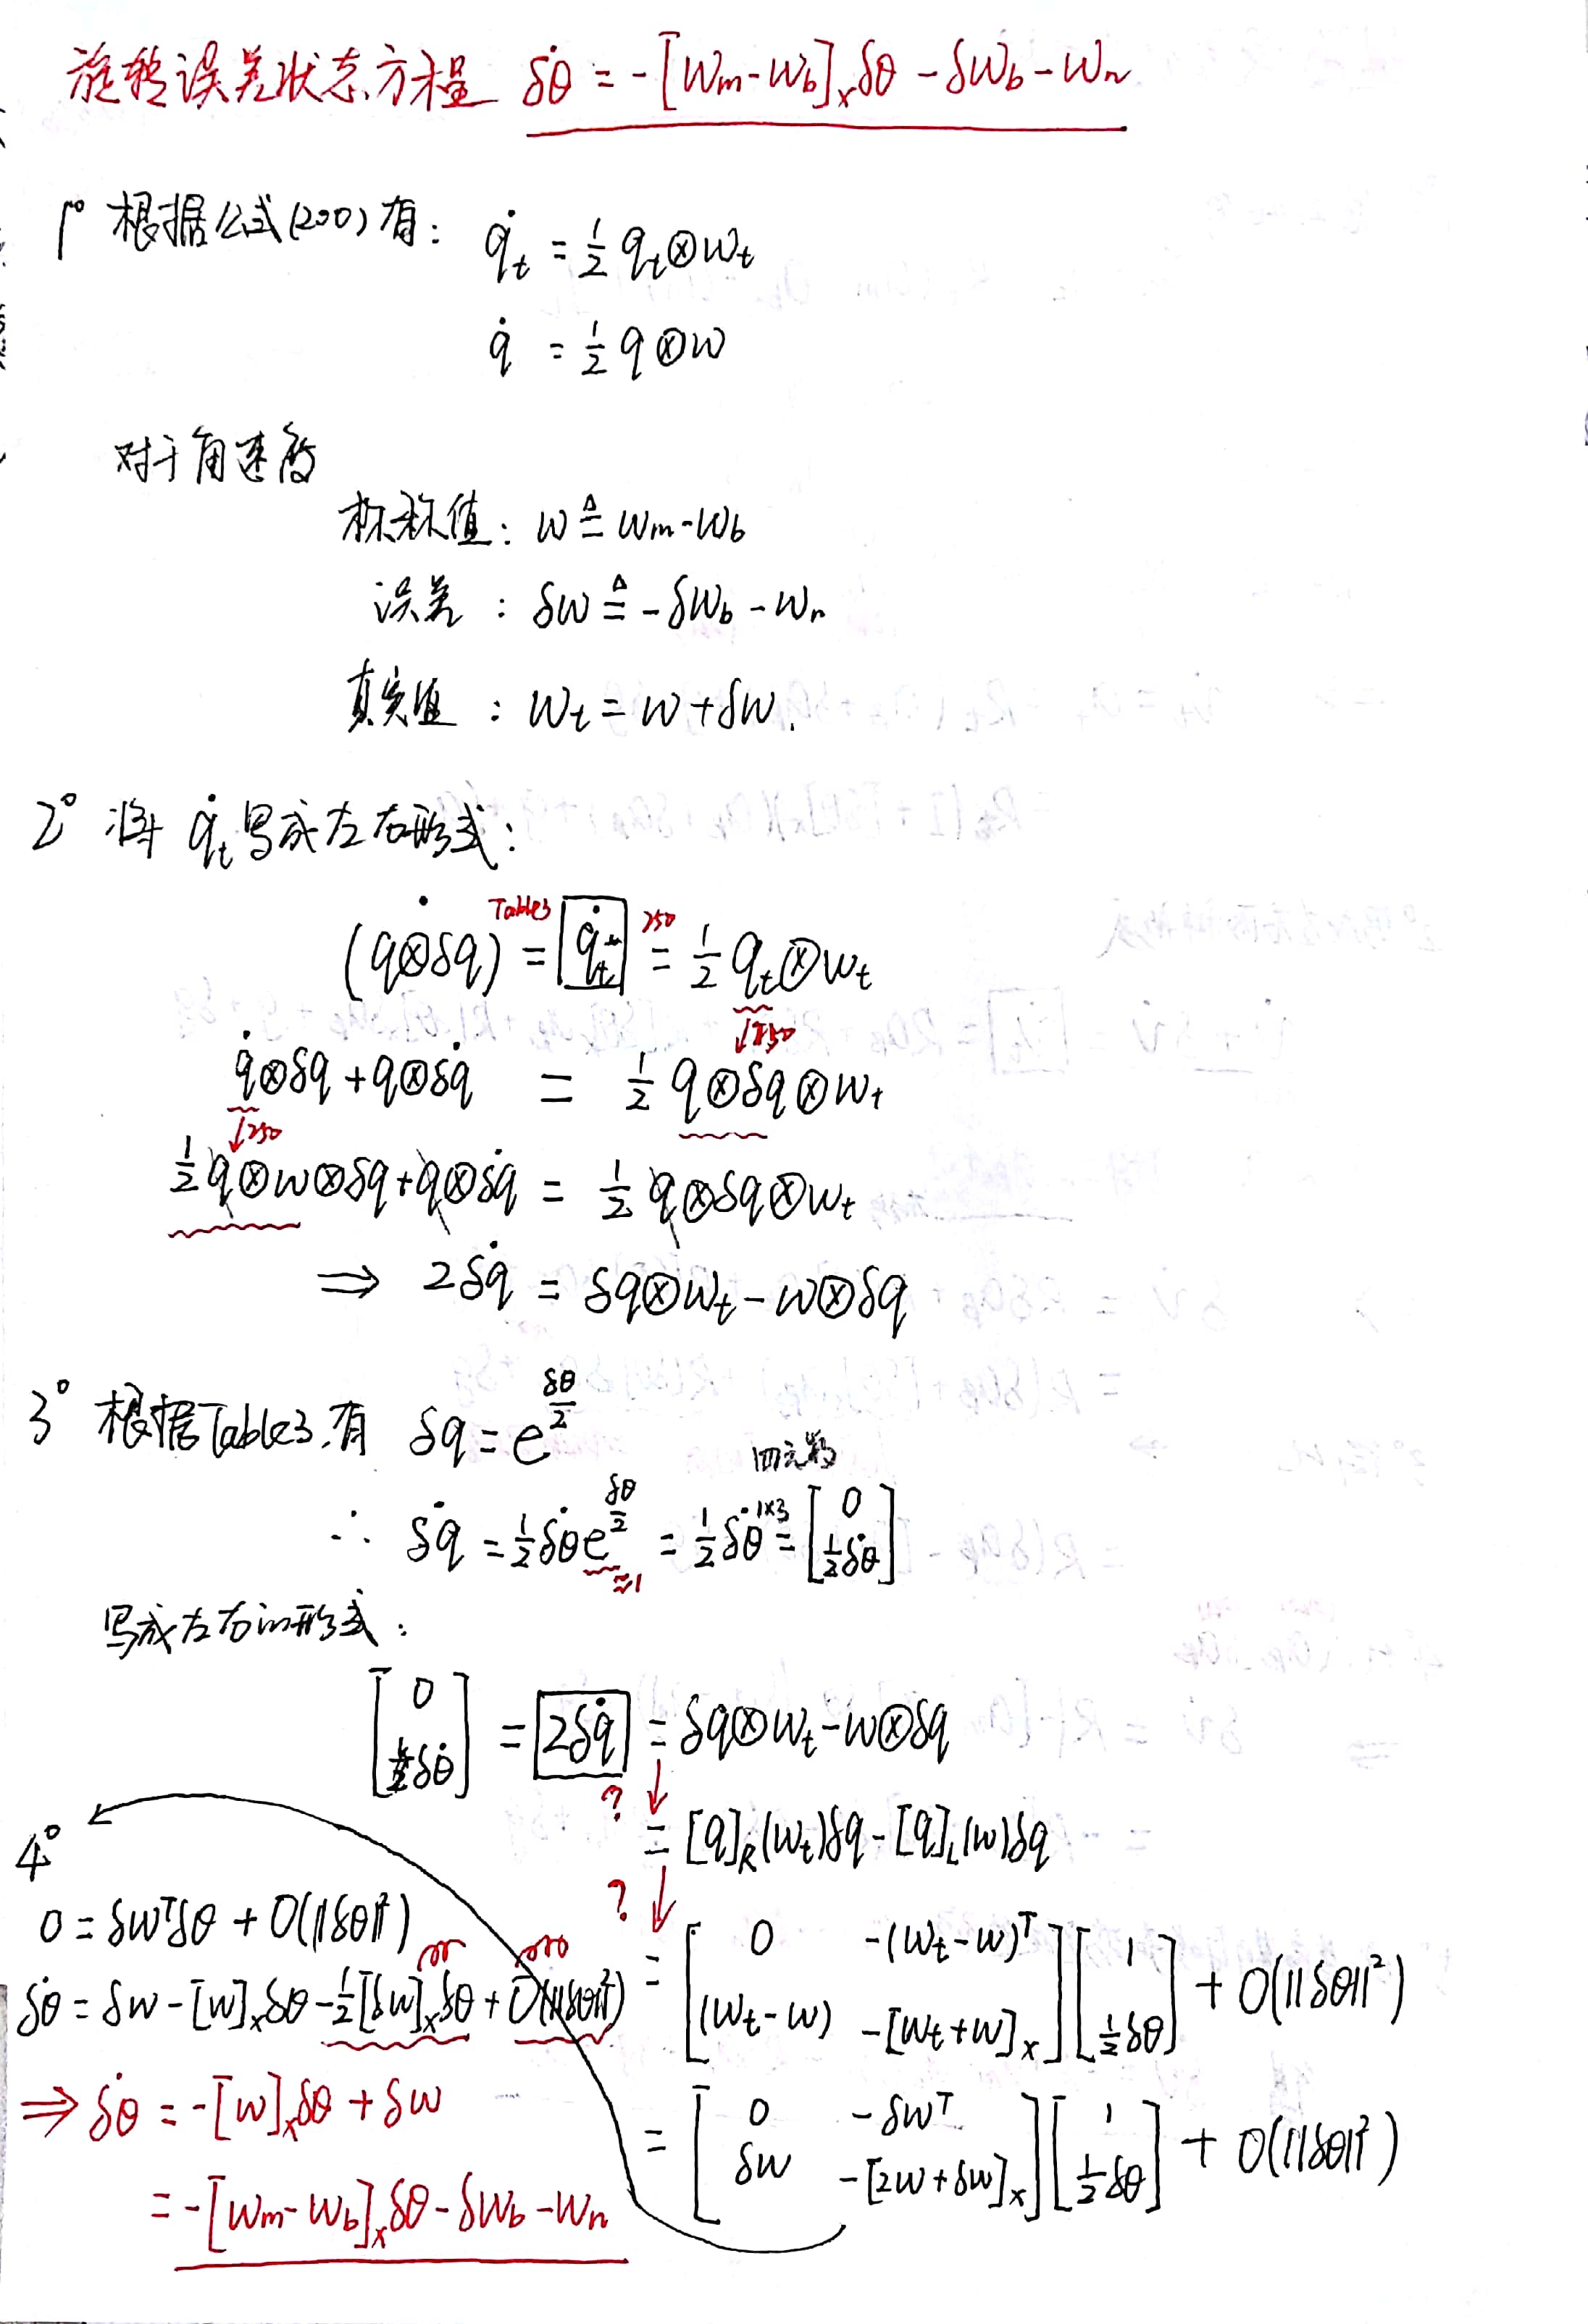 旋转误差状态方程 δθ̇ = -[Wm-Wb]ₓδθ - δWb - Wn
1° 根据公式(200)有: q̇t = ½ qt⊗wt
q̇ = ½ q⊗w
对于角速度
标称值: w ≜ wm-wb
误差 : δw ≜ -δwb - wn
真实值 : wt = w + δw.
2° 将 q̇t 写成左右形式:
(q⊗δq)˙ =(Table3) [q̇t] =(250) ½ qt⊗wt
↓250
q̇⊗δq + q⊗δq̇ = ½ q⊗δq⊗wt
↓250
½ q⊗w⊗δq + q⊗δq̇ = ½ q⊗δq⊗wt
⇒ 2δq̇ = δq⊗wt - w⊗δq
3° 根据Table3.有 δq = e^(δθ/2)
四元数
∴ δq̇ = ½ δθ̇ e^(δθ/2) = ½ δθ̇ 1×3 = [0; ½δθ̇]
≈1
写成左右的形式:
[0; δθ̇] = [2δq̇] = δq⊗wt - w⊗δq
? ↓
= [q]R(wt)δq - [q]L(w)δq
? ↓
= [0 -(wt-w)ᵀ; (wt-w) -[wt+w]ₓ] [1; ½δθ] + O(||δθ||²)
= [0 -δwᵀ; δw -[2w+δw]ₓ] [1; ½δθ] + O(||δθ||²)
4°
0 = δwᵀδθ + O(||δθ||²)
δθ̇ = δw - [w]ₓδθ - ½[δw]ₓδθ + O(||δθ||²)
⇒ δθ̇ = -[w]ₓδθ + δw
= -[wm-wb]ₓδθ - δwb - wn